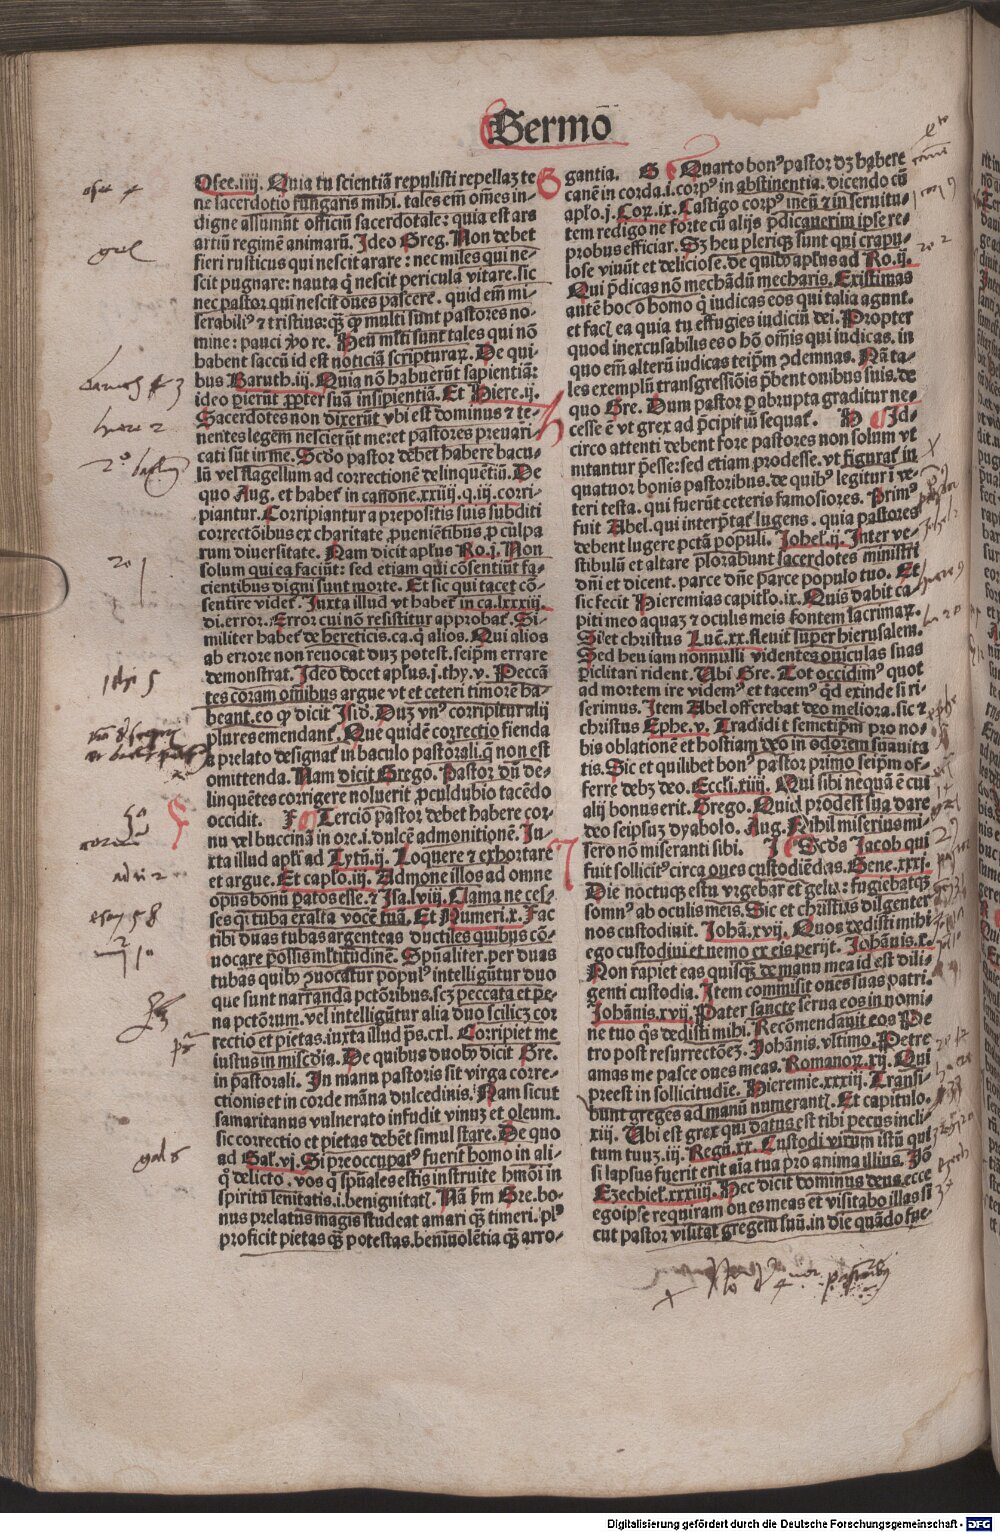 Sermō
Osee.iiij. Quia tu scientiā repulisti repellaz te
ne sacerdotio fungaris mihi. tales em̄ om̄es in-
digne assumūt officiū sacerdotale: quia est ars
artiū regimē animarū. Ideo Greg. Non debet
fieri rusticus qui nescit arare: nec miles qui ne-
scit pugnare: nauta q̄ nescit pericula vitare. sic
nec pastor qui nescit oues pascere. quid em̄ mi-
serabiliꝰ ⁊ tristius: q̄ꝫ ꝙ multi sunt pastores no-
mine: pauci ꝟo re. Heu mlti sunt tales qui nō
habent saccū id est noticiā scripturaꝝ. De qui-
bus Baruth.iij. Quia nō habuerūt sapientiā:
ideo ꝑierūt ꝓpter suā insipientiā. Et Hiere.ij.
Sacerdotes non dixerūt vbi est dominus ⁊ te-
nentes legem nescierūt me: et pastores preuari-
cati sūt in me. Scd̄o pastor debet habere bacu-
lū vel flagellum ad correctionē delinquētiū. De
quo Aug. et habet̄ in canone.xxiiij.q.iij. corri-
piantur. Corripiantur a prepositis suis subditi
correctōibus ex charitate ꝓuenietibus ꝓ culpa
rum diuersitate. Nam dicit apl̄us Ro.j. Non
solum qui ea faciūt: sed etiam qui cōsentiūt fa-
cientibus digni sunt morte. Et sic qui tacet cō-
sentire videt̄. Iuxta illud vt habet̄ in ca.lxxxiij.
di. error. Error cui non resistitur approbat̄. Si-
militer habet̄ de hereticis.ca. q̄ alios. Qui alios
ab errore non reuocat duꝫ potest. seipm̄ errare
demonstrat. Ideo docet apl̄us.j.thy.v. Peccā-
tes coram omībus argue vt et ceteri timorē ha-
beant. eo ꝙ dicit Isid. Duꝫ vnꝰ corripitur alij
plures emendant̄. Que quidē correctio fienda
a prelato designat̄ in baculo pastorali. q̄ non est
omittenda. Nam dicit Grego. Pastor dū de-
linquētes corrigere noluerit ꝓculdubio tacēdo
occidit. F Tercio pastor debet habere cor-
nu vel buccinā in ore.i. dulcē admonitionē. Iu-
xta illud apl̄i ad Tytū.ij. Loquere ⁊ exhortare
et argue. Et capl̄o.iij. Admone illos ad omne
opus bonū paratos esse. ⁊ Isa.lviij. Clama ne ces-
ses q̄ tuba exalta vocē tuā. Et Numeri.x. Fac
tibi duas tubas argenteas ductiles quibus cō-
uocare possis multitudinē. Spūaliter. per duas
tubas quibꝰ ꝯuocatur populꝰ intelligūtur duo
que sunt narranda pctōribus. scꝫ peccata et pe-
na pctōrum. vel intelligūtur alia duo scilicꝫ cor
rectio et pietas. iuxta illud ps.cxl. Corripiet me
iustus in mīscd̄ia. De quibus duobꝰ dicit Gre.
in pastorali. In manu pastoris sit virga corre-
ctionis et in corde māna dulcedinis. Nam sicut
samaritanus vulnerato infudit vinuꝫ et oleum.
sic correctio et pietas debēt simul stare. De quo
ad Gal.vj. Si preoccupatꝰ fuerit homo in ali-
q̄ delicto. vos q̄ spūales estis instruite hm̄oi in
spiritu lenitatis.i. benignitatꝭ. Nā ẜm Gre. bo-
nus prelatus magis studeat amari q̄ꝫ timeri. plꝰ
proficit pietas q̄ꝫ potestas. beniuolētia q̄ꝫ arro-
gantia. G Quarto bonꝰ pastor dꝫ habere
canē in corda.i. corpꝰ in abstinentia. dicendo cū
apl̄o.j. Coꝝ.ix. Castigo corpꝰ meū ⁊ in seruitu-
tem redigo ne forte cū alijs p̄dicauerim ipse re-
probus efficiar. Sꝫ heu pleriqꝫ sunt qui crapu-
lose viuūt et deliciose. de quibꝰ apl̄us ad Ro.ij.
Qui p̄dicas nō mechādū mecharis. Existimas
autē hoc o homo q̄ iudicas eos qui talia agunt.
et facꝭ ea quia tu effugies iudiciū dei. Propter
quod inexcusabilis es o hō om̄is qui iudicas. in
quo em̄ alterū iudicas teip̄m ꝯdemnas. Nā ta-
les exemplū transgressiōis p̄bent ouibus suis. de
quo Gre. Dum pastor ꝑ abrupta graditur ne-
cesse ē vt grex ad p̄cipitiū sequat̄. H Id-
circo attenti debent fore pastores non solum vt
nitantur p̄esse: sed etiam prodesse. vt figurat̄ in
quatuor bonis pastoribus. de quibꝰ legitur ī ve-
teri testa. qui fuerūt ceteris famosiores. Primꝰ
fuit Abel. qui interp̄tat̄ lugens. quia pastores
debent lugere pctā populi. Iohel.ij. Inter ve-
stibulū et altare plorabunt sacerdotes ministri
dn̄i et dicent. parce dn̄e parce populo tuo. Et
sic fecit Hieremias capitl̄o.ix. Quis dabit ca-
piti meo aquaꝫ ⁊ oculis meis fontem lacrimaꝝ.
Silet christus Luc̄.xx. fleuit super hierusalem.
Sed heu iam nonnulli videntes ouiculas suas
ꝑiclitari rident. Ubi Gre. Tot occidimꝰ quot
ad mortem ire videmꝰ et tacemꝰ qd̄ exinde si ri-
serimus. Item Abel offerebat deo meliora. sic ⁊
christus Ephe.v. Tradidit semetip̄m pro no-
bis oblationē et hostiam deo in odorem suauita
tis. Sic et quilibet bonꝰ pastor primo seip̄m of-
ferre debꝫ deo. Eccl̄i.xiiij. Qui sibi nequā ē cui
alij bonus erit. Grego. Quid prodest sua dare
deo seipsuꝫ dyabolo. Aug. Nihil miserius mi-
sero nō miseranti sibi. I Scd̄s Jacob qui
fuit sollicitꝰ circa oues custodiēdas. Gene.xxxj.
Die noctuqꝫ estu vrgebar et gelu: fugiebatqꝫ
somnꝰ ab oculis meis. Sic et christus diligenter
nos custodiuit. Johā.xvij. Quos dedisti mihi
ego custodiui et nemo ex eis perijt. Johānis.x.
Non rapiet eas quisqꝫ de manu mea id est dili-
genti custodia. Item commisit oues suas patri.
Johānis.xvij. Pater sancte serua eos in nomi-
ne tuo q̄s dedisti mihi. Recomendauit eos Pe
tro post resurrectōeꝫ. Johānis.vltimo. Petre
amas me pasce oues meas. Romanoꝝ.xij. Qui
preest in sollicitudīe. Hieremie.xxxiij. Transi-
bunt greges ad manū numerantꝭ. Et capitulo.
xiij. Ubi est grex qui datus est tibi pecus incli-
tum tuuꝫ.iij. Regū.xx. Custodi virum istū qui
si lapsus fuerit erit aīa tua pro anima illius. Jō
Ezechiel̄.xxxiiij. Hec dicit dominus deus. ecce
egoipse requiram oues meas et visitabo illas si
cut pastor visitat gregem suū. in die quādo fue-
Digitalisierung gefördert durch die Deutsche Forschungsgemeinschaft - DFG